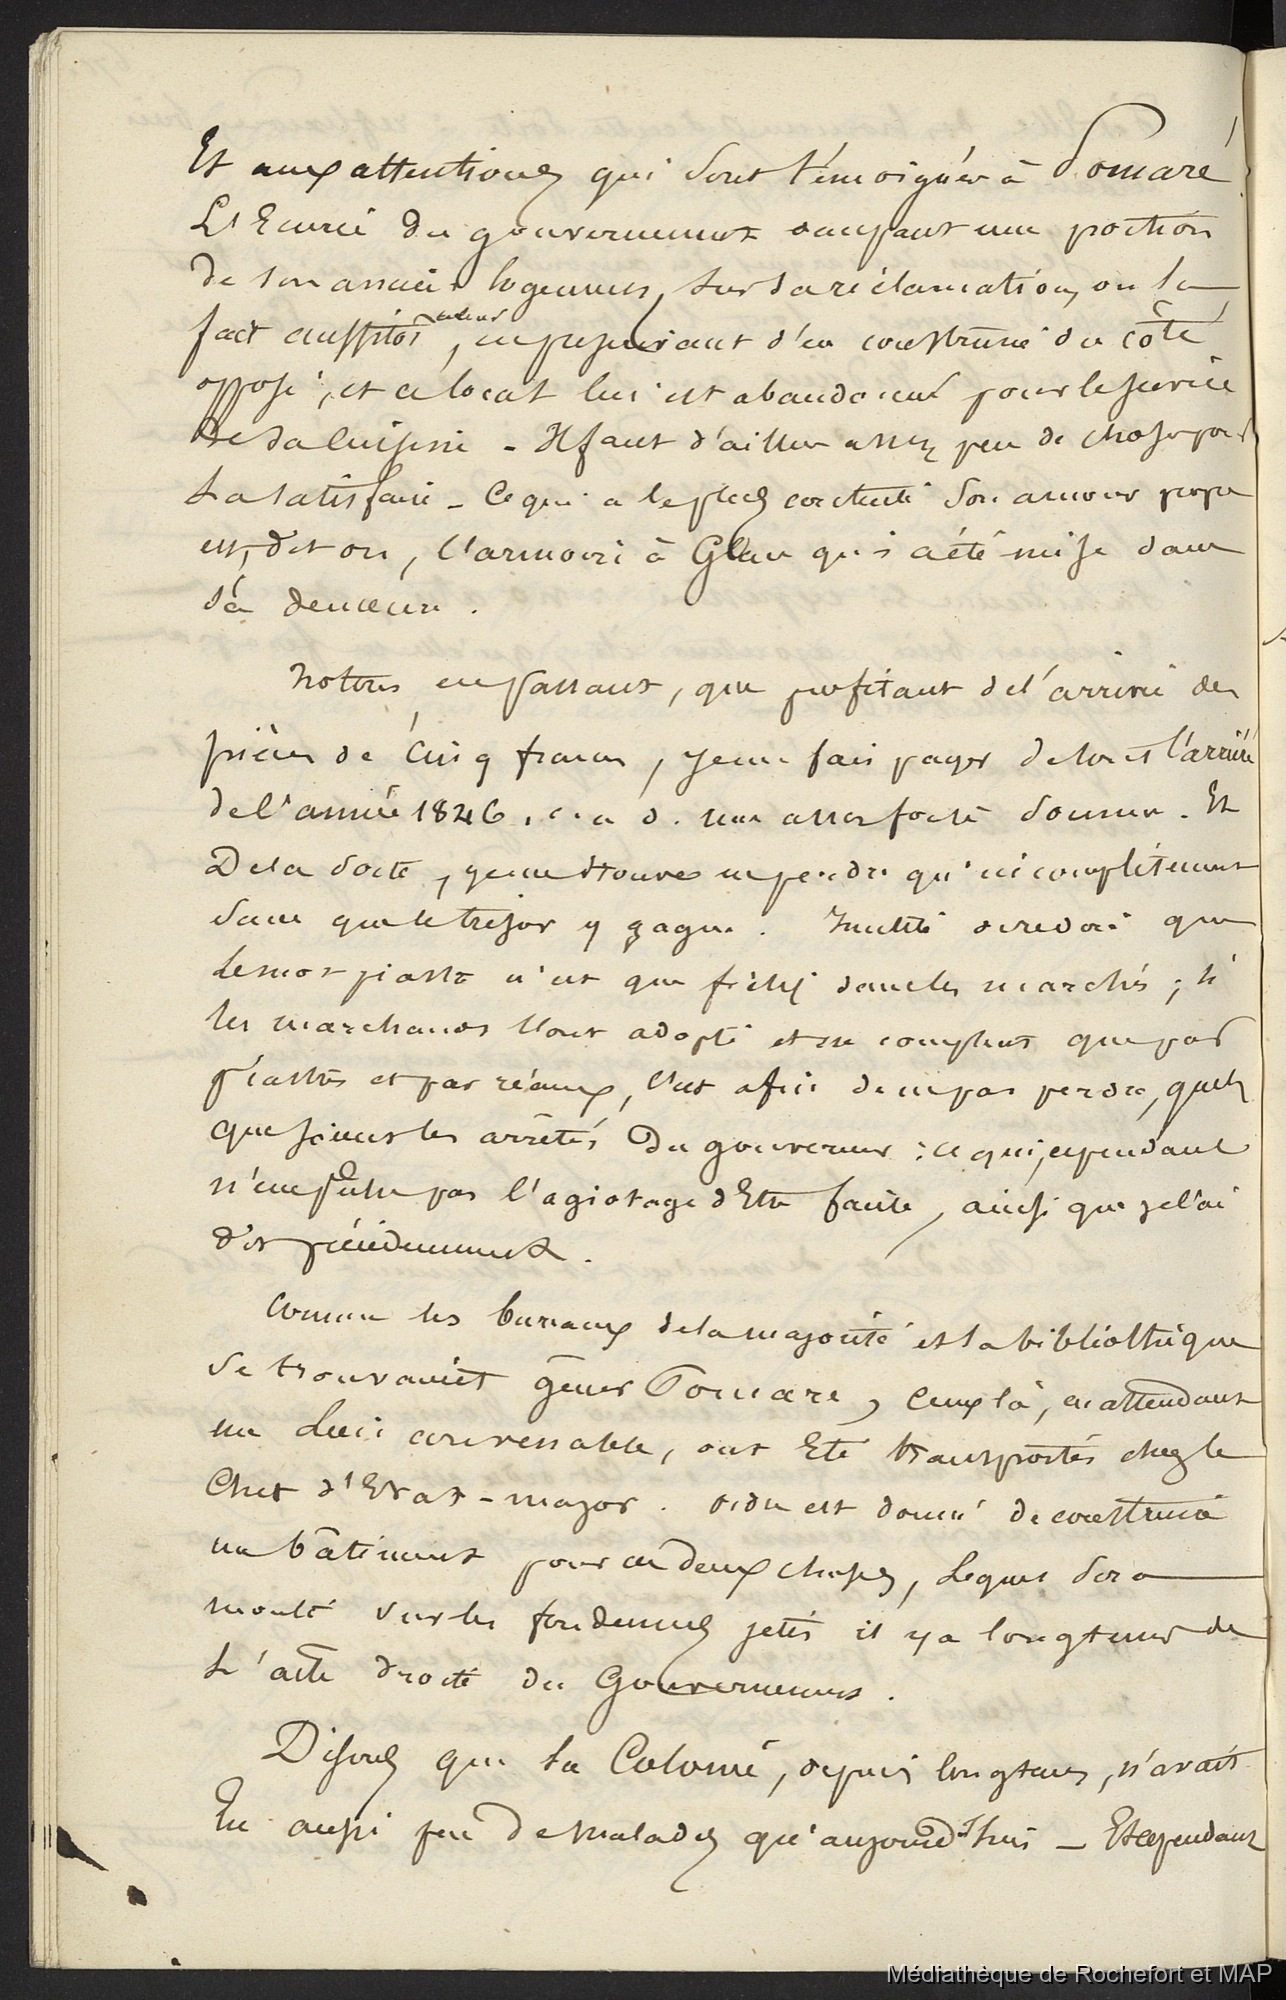 Et aux attentions qui sont témoignées à Pomaré.
L'Ecurie du gouvernement occupant une portion
de son ancien logement, sur sa réclamation, on la
fait aussitôt enlever, en prescrivant d'en construire du côté
opposé, et ce local lui est abandonné pour le service
de sa cuisine - Il faut d'ailleurs assez peu de chose pour
la satisfaire - Ce qui a le plus contenté son amour propre
est, dit on, l'armoire à Glace qui a été mise dans
sa demeure.
Notons en passant, que profitant de l'arrivée des
pièces de Cinq francs, je me fais payer de tout l'arriéré
de l'année 1846, c. a d. une assez forte somme. Et
De la sorte, je me trouve ne perdre qu'incomplètement
sans que le trésor y gagne. Inutile de redire que
le mot piastre n'est que fictif dans les marchés; si
les marchands l'ont adopté et ne comptent que par
piastres et par réaux, c'est afin de ne pas perdre, quels
que soient les arrêtés Du gouverneur : ce qui, cependant
n'empêche pas l'agiotage d'Etre facile, ainsi que je l'ai
dit précédemment.
Comme les bureaux de la majorité et la bibliothèque
se trouvaient gêner Pomare, ceux là, en attendant
un lieu convenable, ont Eté transportés chez le
Chef d'Etat-major. ordre est donné de construire
un bâtiment pour ces deux choses, lequel sera
monté sur les fondements jetés il y a longtems de
l'aile droite du Gouvernement.
Disons que la Colonie, depuis longtems, n'avait
Eu aussi peu De malades qu'aujourd'hui - Et cependant
Médiathèque de Rochefort et MAP